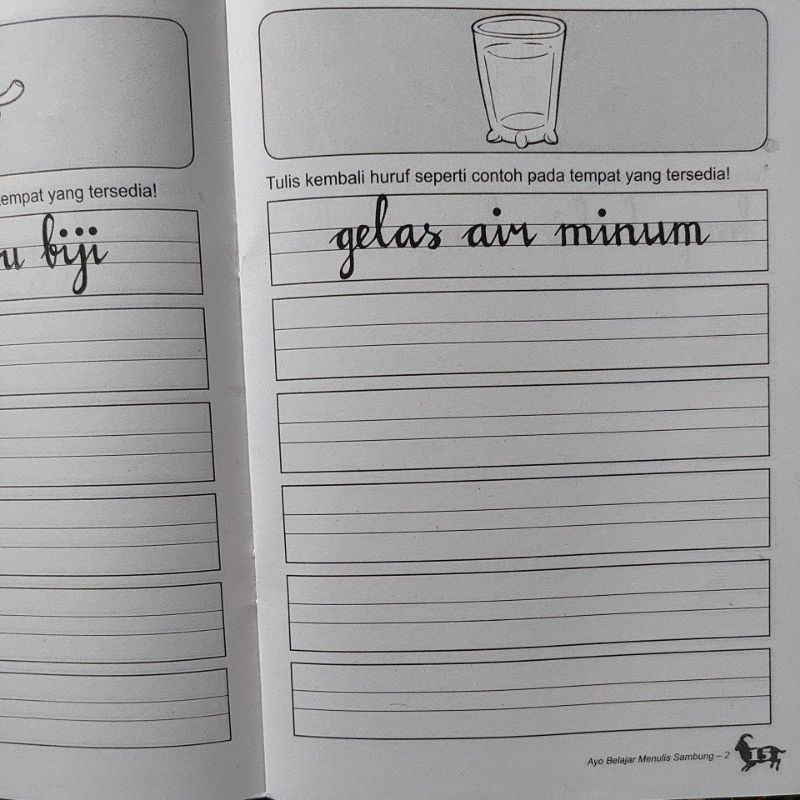 empat yang tersedia!
u biji
Tulis kembali huruf seperti contoh pada tempat yang tersedia!
gelas air minum
Ayo Belajar Menulis Sambung – 2
15